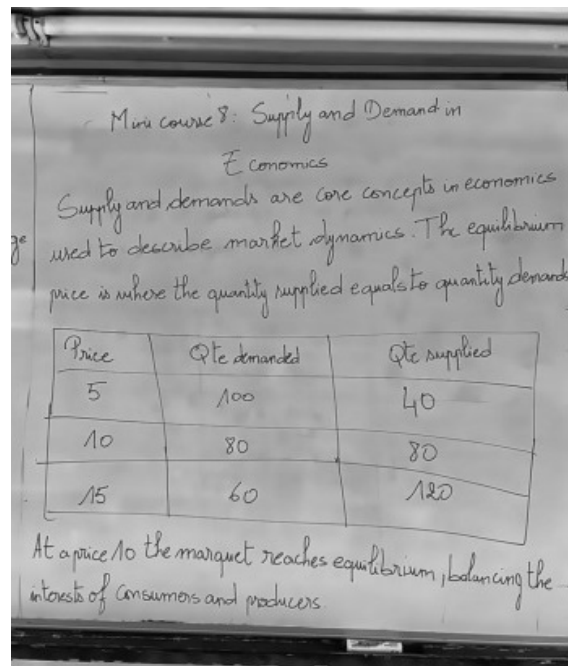 Mini course 8: Supply and Demand in
Economics
Supply and demands are core concepts in economics
ge
used to describe market dynamics. The equilibrium
price is where the quantity supplied equals to quantity demands
Price Qte demanded Qte supplied
5 100 40
10 80 80
15 60 120
At a price 10 the marquet reaches equilibrium, balancing the
interests of consumers and producers